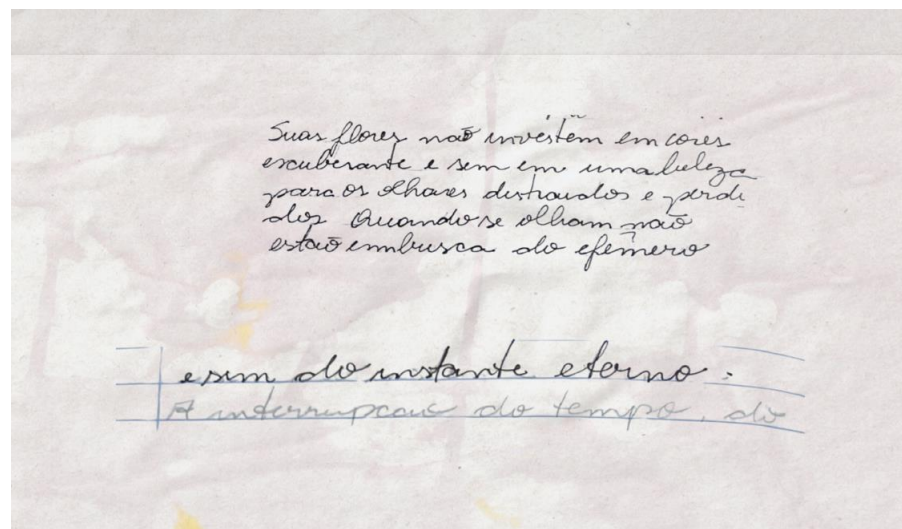 Suas flores não investem em cores
exuberante e sem em uma beleza
para os olhares distraidos e perdi
dos Quando se olham não
estão em busca do efêmero
e sim do instante eterno.
A interrupção do tempo, do